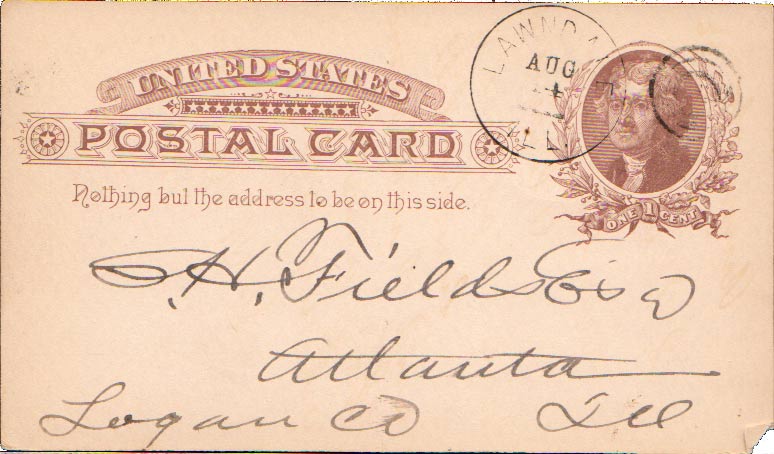 UNITED STATES
POSTAL CARD
Nothing but the address to be on this side.
LAWNDALE
AUG
4
ILL.
ONE 1 CENT
S. H. Fields Esq
Atlanta
Logan Co Ill